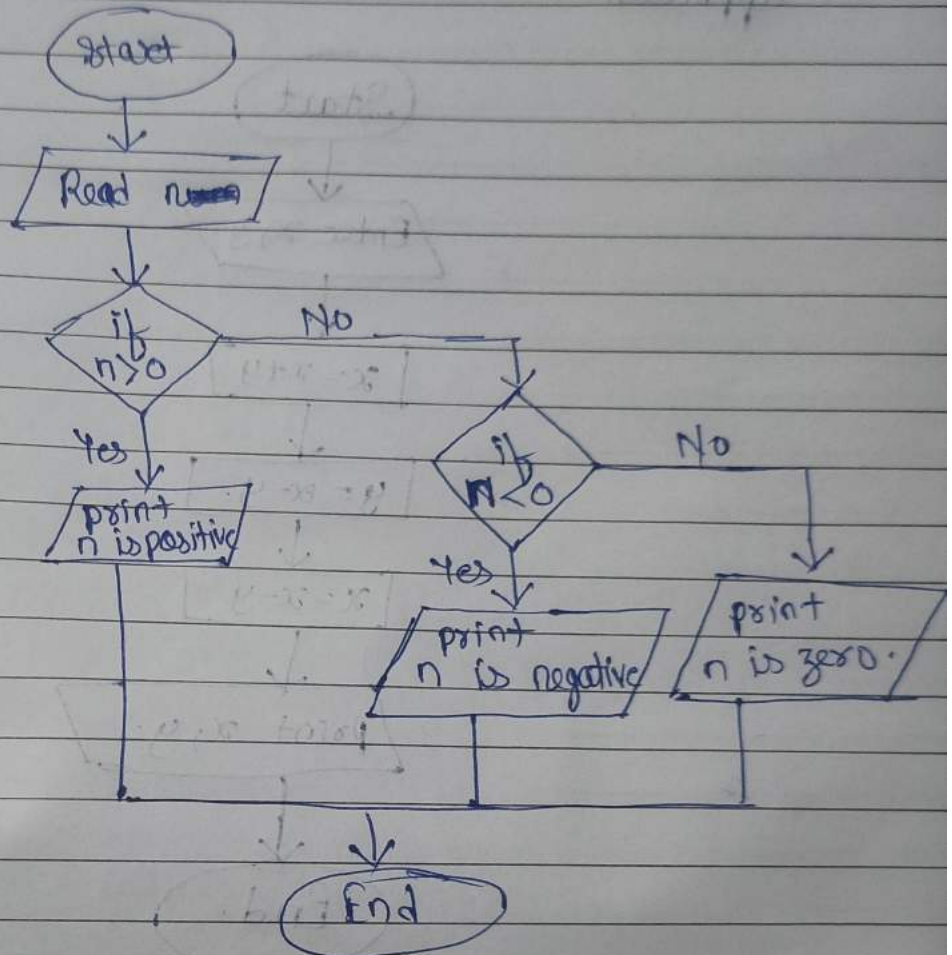 Start
Read n
if
n>0
No
Yes
print
n is positive
if
N<0
No
Yes
print
n is negative
print
n is zero.
End